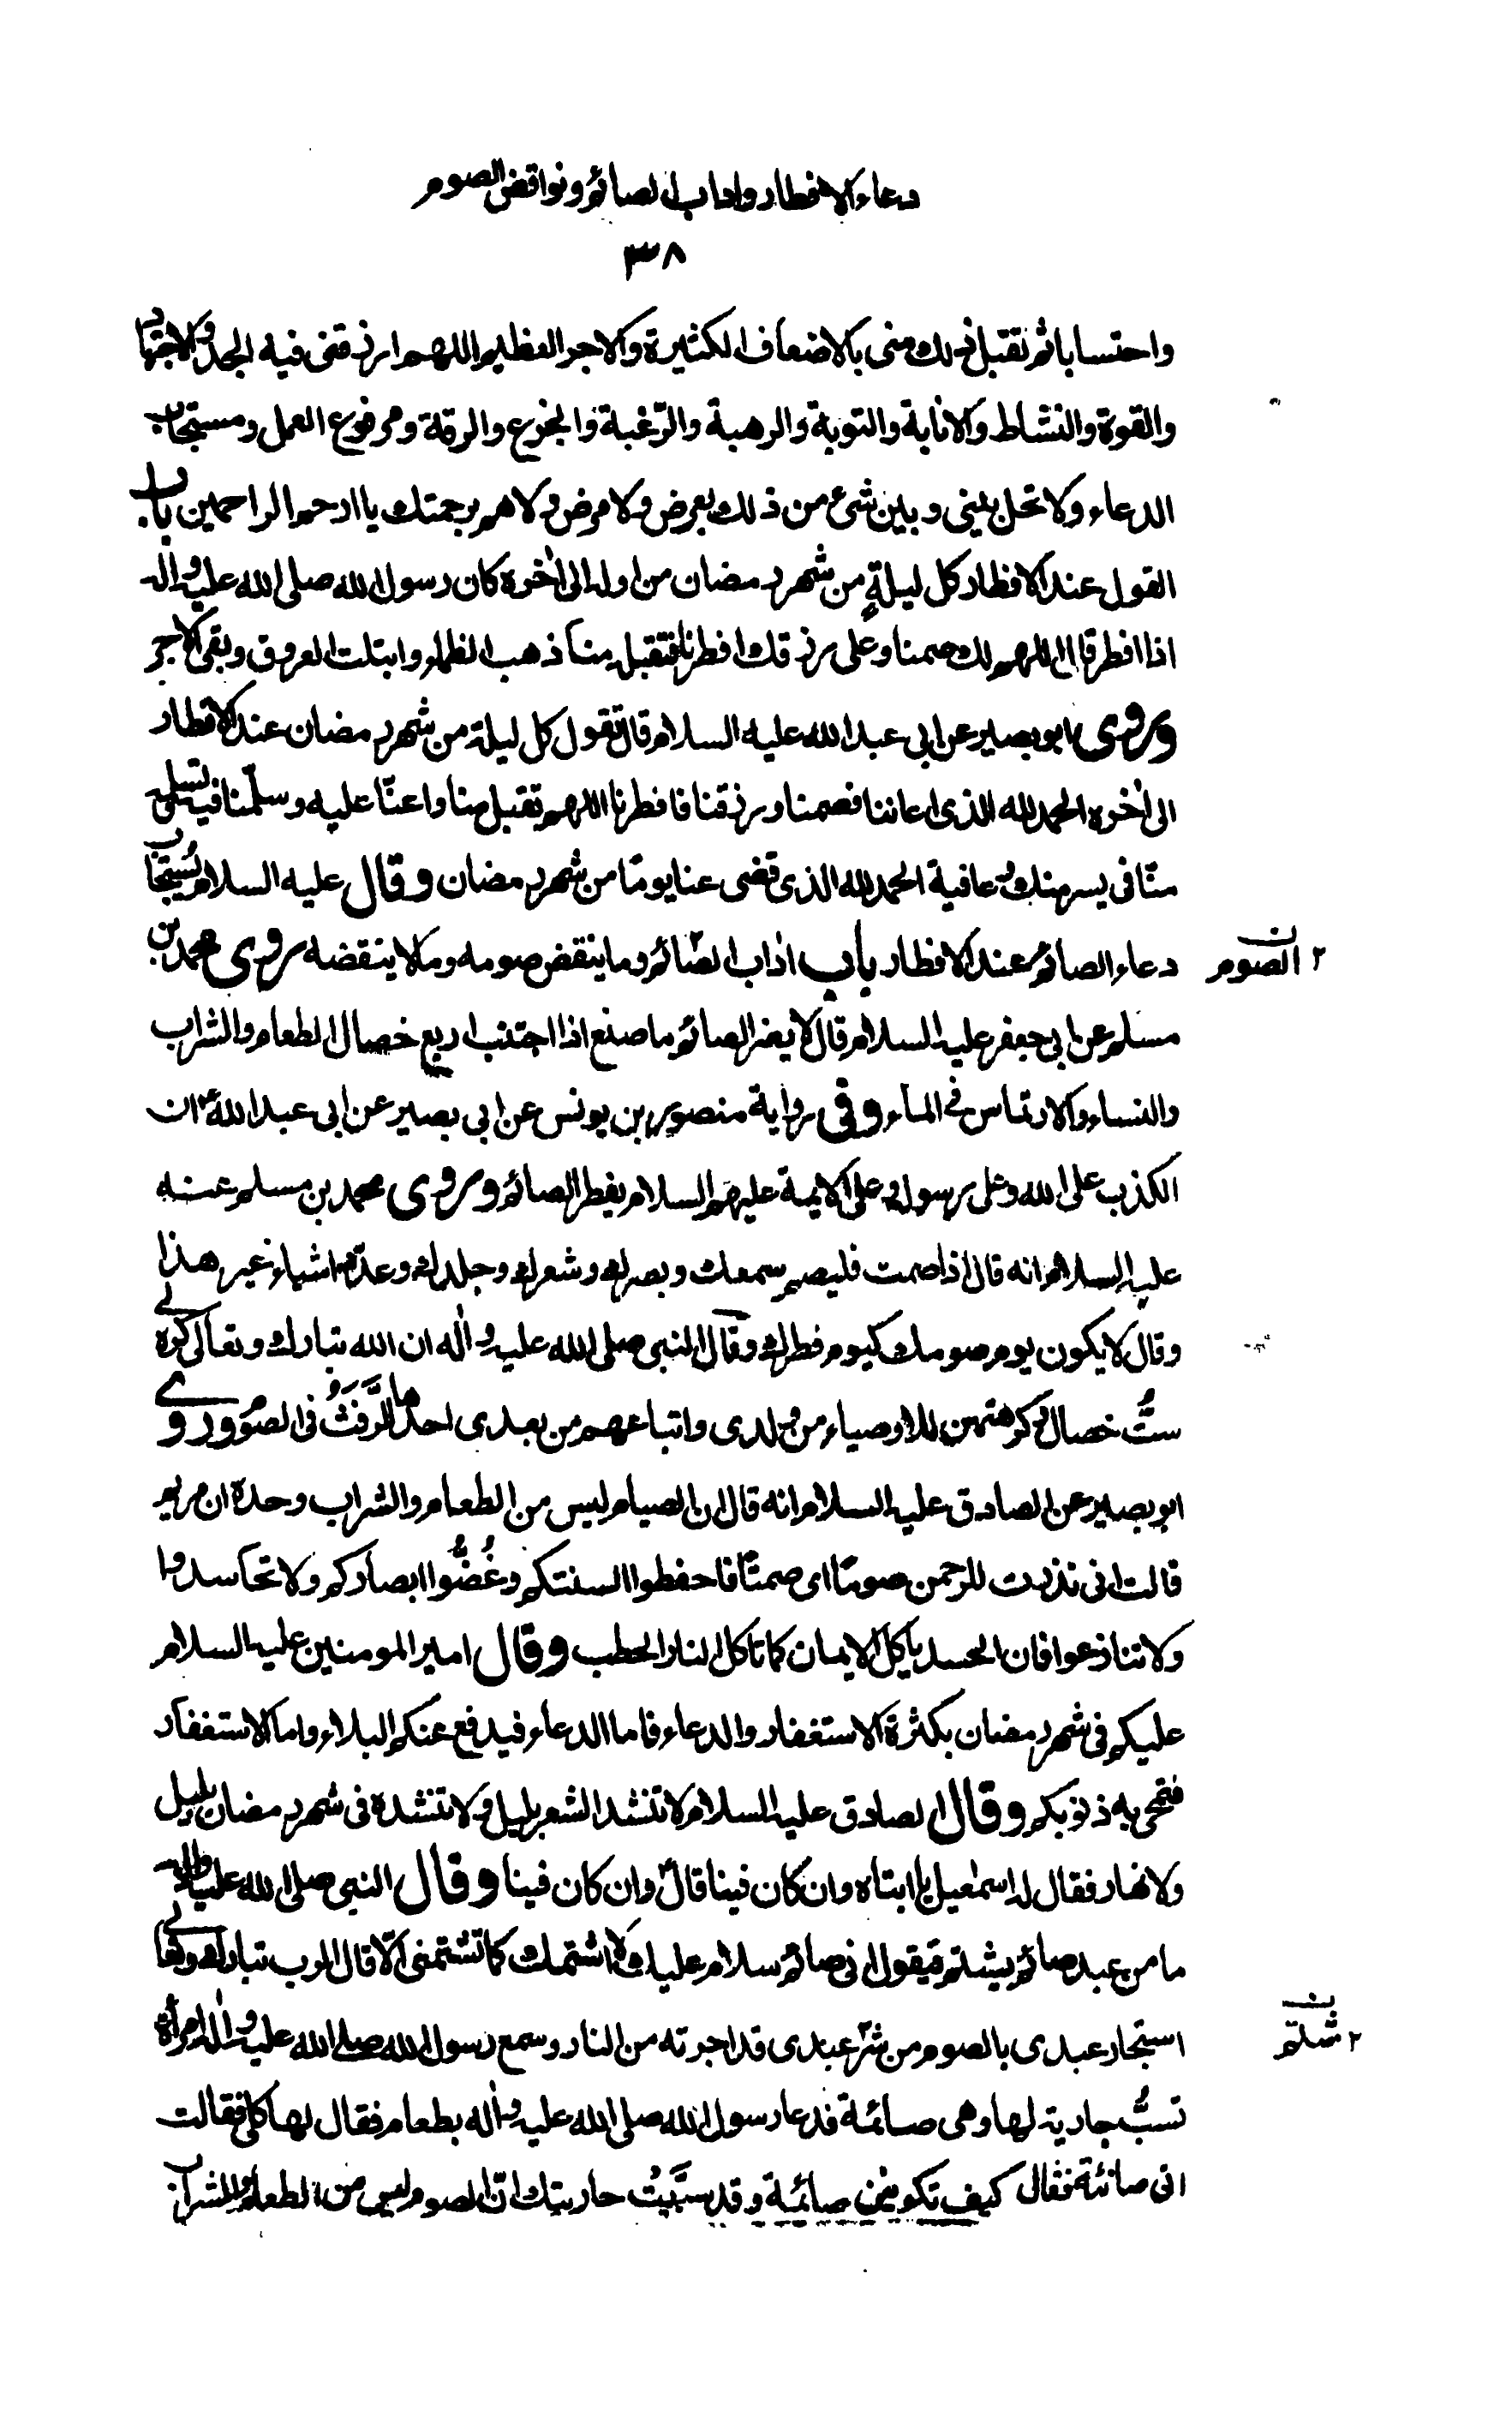 دعاء الافطار واداب الصائم ونواقض الصوم
٣٨
واحتسابا ثم تقبل ذلك منى بالاضعاف الكثيرة والاجر العظيم اللهم ارزقنى فيه الجد والاجتهاد
والقوة والنشاط والانابة والتوبة والرهبة والرّغبة والجزع والرقة ومرفوع العمل ومستجاب
الدعاء ولا تحل بينى وبين شئ من ذلك بعرض ولا مرض ولا هم برحمتك يا ارحم الراحمين باب
القول عند الافطار كل ليلةٍ من شهر رمضان من اوله الى اٰخره كان رسول الله صلى الله عليه واله
اذا افطر قال اللهم لك صمنا وعلى رزقك افطرنا فتقبله منا ذهب الظمأ وابتلت العروق وبقى الاجر
وروى ابو بصير عن ابى عبد الله عليه السلام قال تقول كل ليلة من شهر رمضان عند الافطار
الى اٰخره الحمد لله الذى اعاننا فصمنا ورزقنا فافطرنا اللهم تقبل منا واعنّا عليه وسلّمنا فيه وتسلمه
منّا فى يسر منك وعافية الحمد لله الذى قضى عنا يومًا من شهر رمضان وقال عليه السلام يُستجاب
دعاء الصائم عند الافطار باب اٰداب الصّائم وما ينقض صومه وما لا ينقضه روى محمد بن
٢ الصوم ن
مسلم عن ابى جعفر عليه السلام قال لا يضر الصائم ما صنع اذا اجتنب اربع خصال الطعام والشراب
والنساء والارتماس فى الماء وفى رواية منصور بن يونس عن ابى بصير عن ابى عبد الله ع ان
الكذب على الله وعلى رسوله وعلى الايمة عليهم السلام يفطر الصائم وروى محمد بن مسلم عنه
عليه السلام انه قال اذا صمت فليصم سمعك وبصرك وشعرك وجلدك وعدّد اشياء غير هذا
وقال لا يكون يوم صومك كيوم فطرك وقال النبى صلى الله عليه واٰله ان الله تبارك وتعالى كره لى
ستُّ خصال ثم كرهتهن للاوصياء من ولدى واتباعهم من بعدى احدها الرَّفَثُ فى الصوم وروى
ابو بصير عن الصادق عليه السلام انه قال ان الصيام ليس من الطعام والشراب وحده ان مريم
قالت انى نذرت للرحمن صومًا اى صمتًا فاحفظوا السنتكم وغُضُّوا ابصاركم ولا تحاسدوا
ولا تنازعوا فان الحسد ياكل الايمان كما تاكل النار الحطب وقال امير المومنين عليه السلام
عليكم فى شهر رمضان بكثرة الاستغفار والدعاء فاما الدعاء فيدفع عنكم البلاء واما الاستغفار
فتمحى به ذنوبكم وقال الصادق عليه السلام لا تنشد الشعر بليل ولا تنشده فى شهر رمضان بليل
ولا نهار فقال له اسمٰعيل يا ابتاه وان كان فينا قال وان كان فينا وقال النبى صلى الله عليه واله
ما من عبد صائم يشتم فيقول انى صائم سلام عليك لا اشتمك كما تشتمنى الّا قال الرب تبارك وتعالى
استجار عبدى بالصوم من شرّ عبدى قد اجرته من النار وسمع رسول الله صلى الله عليه واٰله امرأة
٢ شتم ن
تسبُّ جارية لها وهى صائمة فدعا رسول الله صلى الله عليه واٰله بطعام فقال لها كلى فقالت
انى صائمة فقال كيف تكونين صائمة وقد سبَّبتُ جاريتك انّ الصوم ليس من الطعام والشراب